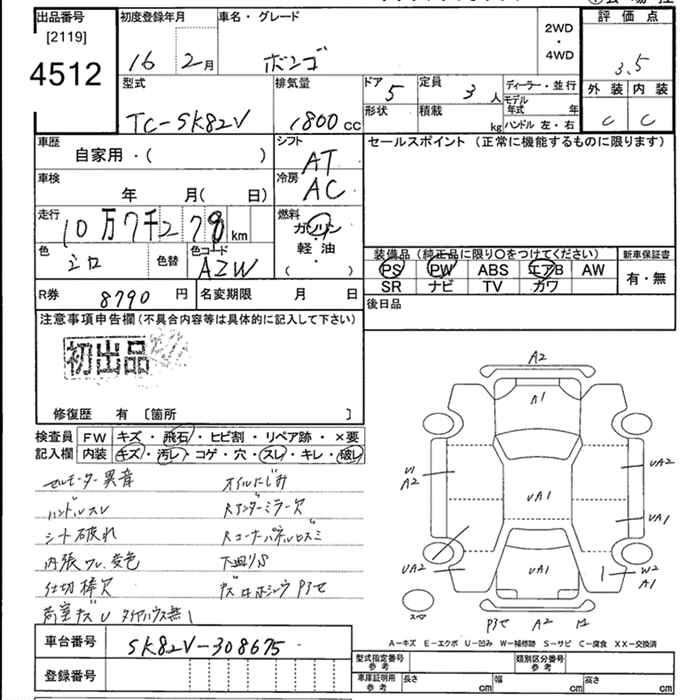 出品番号
[2119]
4512
初度登録年月
16 2月
車名・グレード
ボンゴ
2WD
・
4WD
評価点
3.5
外装 内装
C C
型式
TC-SK82V
排気量
1800cc
ドア 5
形状
定員 3人
積載 kg
ディーラー・並行
モデル年式 年
ハンドル 左・右
車歴
自家用・( )
シフト
AT
車検
年 月( 日)
冷房
AC
走行
10万7千278km
燃料
ガソリン
・
軽・油
・
( )
色
シロ
色替
色コード
AZW
R券 8790円
名変期限 月 日
セールスポイント (正常に機能するものに限ります)
装備品 (純正品に限り〇をつけてください)
PS PW ABS エアB AW
SR ナビ TV カワ
新車保証書
有・無
後日品
注意事項申告欄 (不具合内容等は具体的に記入して下さい)
初出品
修復歴 有 〔箇所 〕
検査員記入欄
FW キズ・飛石・ヒビ割・リペア跡・×要
内装 キズ・汚レ・コゲ・穴・スレ・キレ・破レ
セルモーター異音
オイルにじみ
ハンドルスレ
Rアンダーミラー欠
シート破れ
Rコーナーパネルロズミ
内張ワレ、変色
下廻りS
仕切棒欠
A2
A1
U1
A2
UA2
UA1
UA1
UA2
UA1
W2
A1
スペア
A2
A-キズ E-エクボ U-凹み W-補修跡 S-サビ C-腐食 XX-交換済
車台番号
SK82V-308675
登録番号
型式指定番号
参考
類別区分番号
参考
車庫証明用
参考
長さ cm
幅 cm
高さ cm